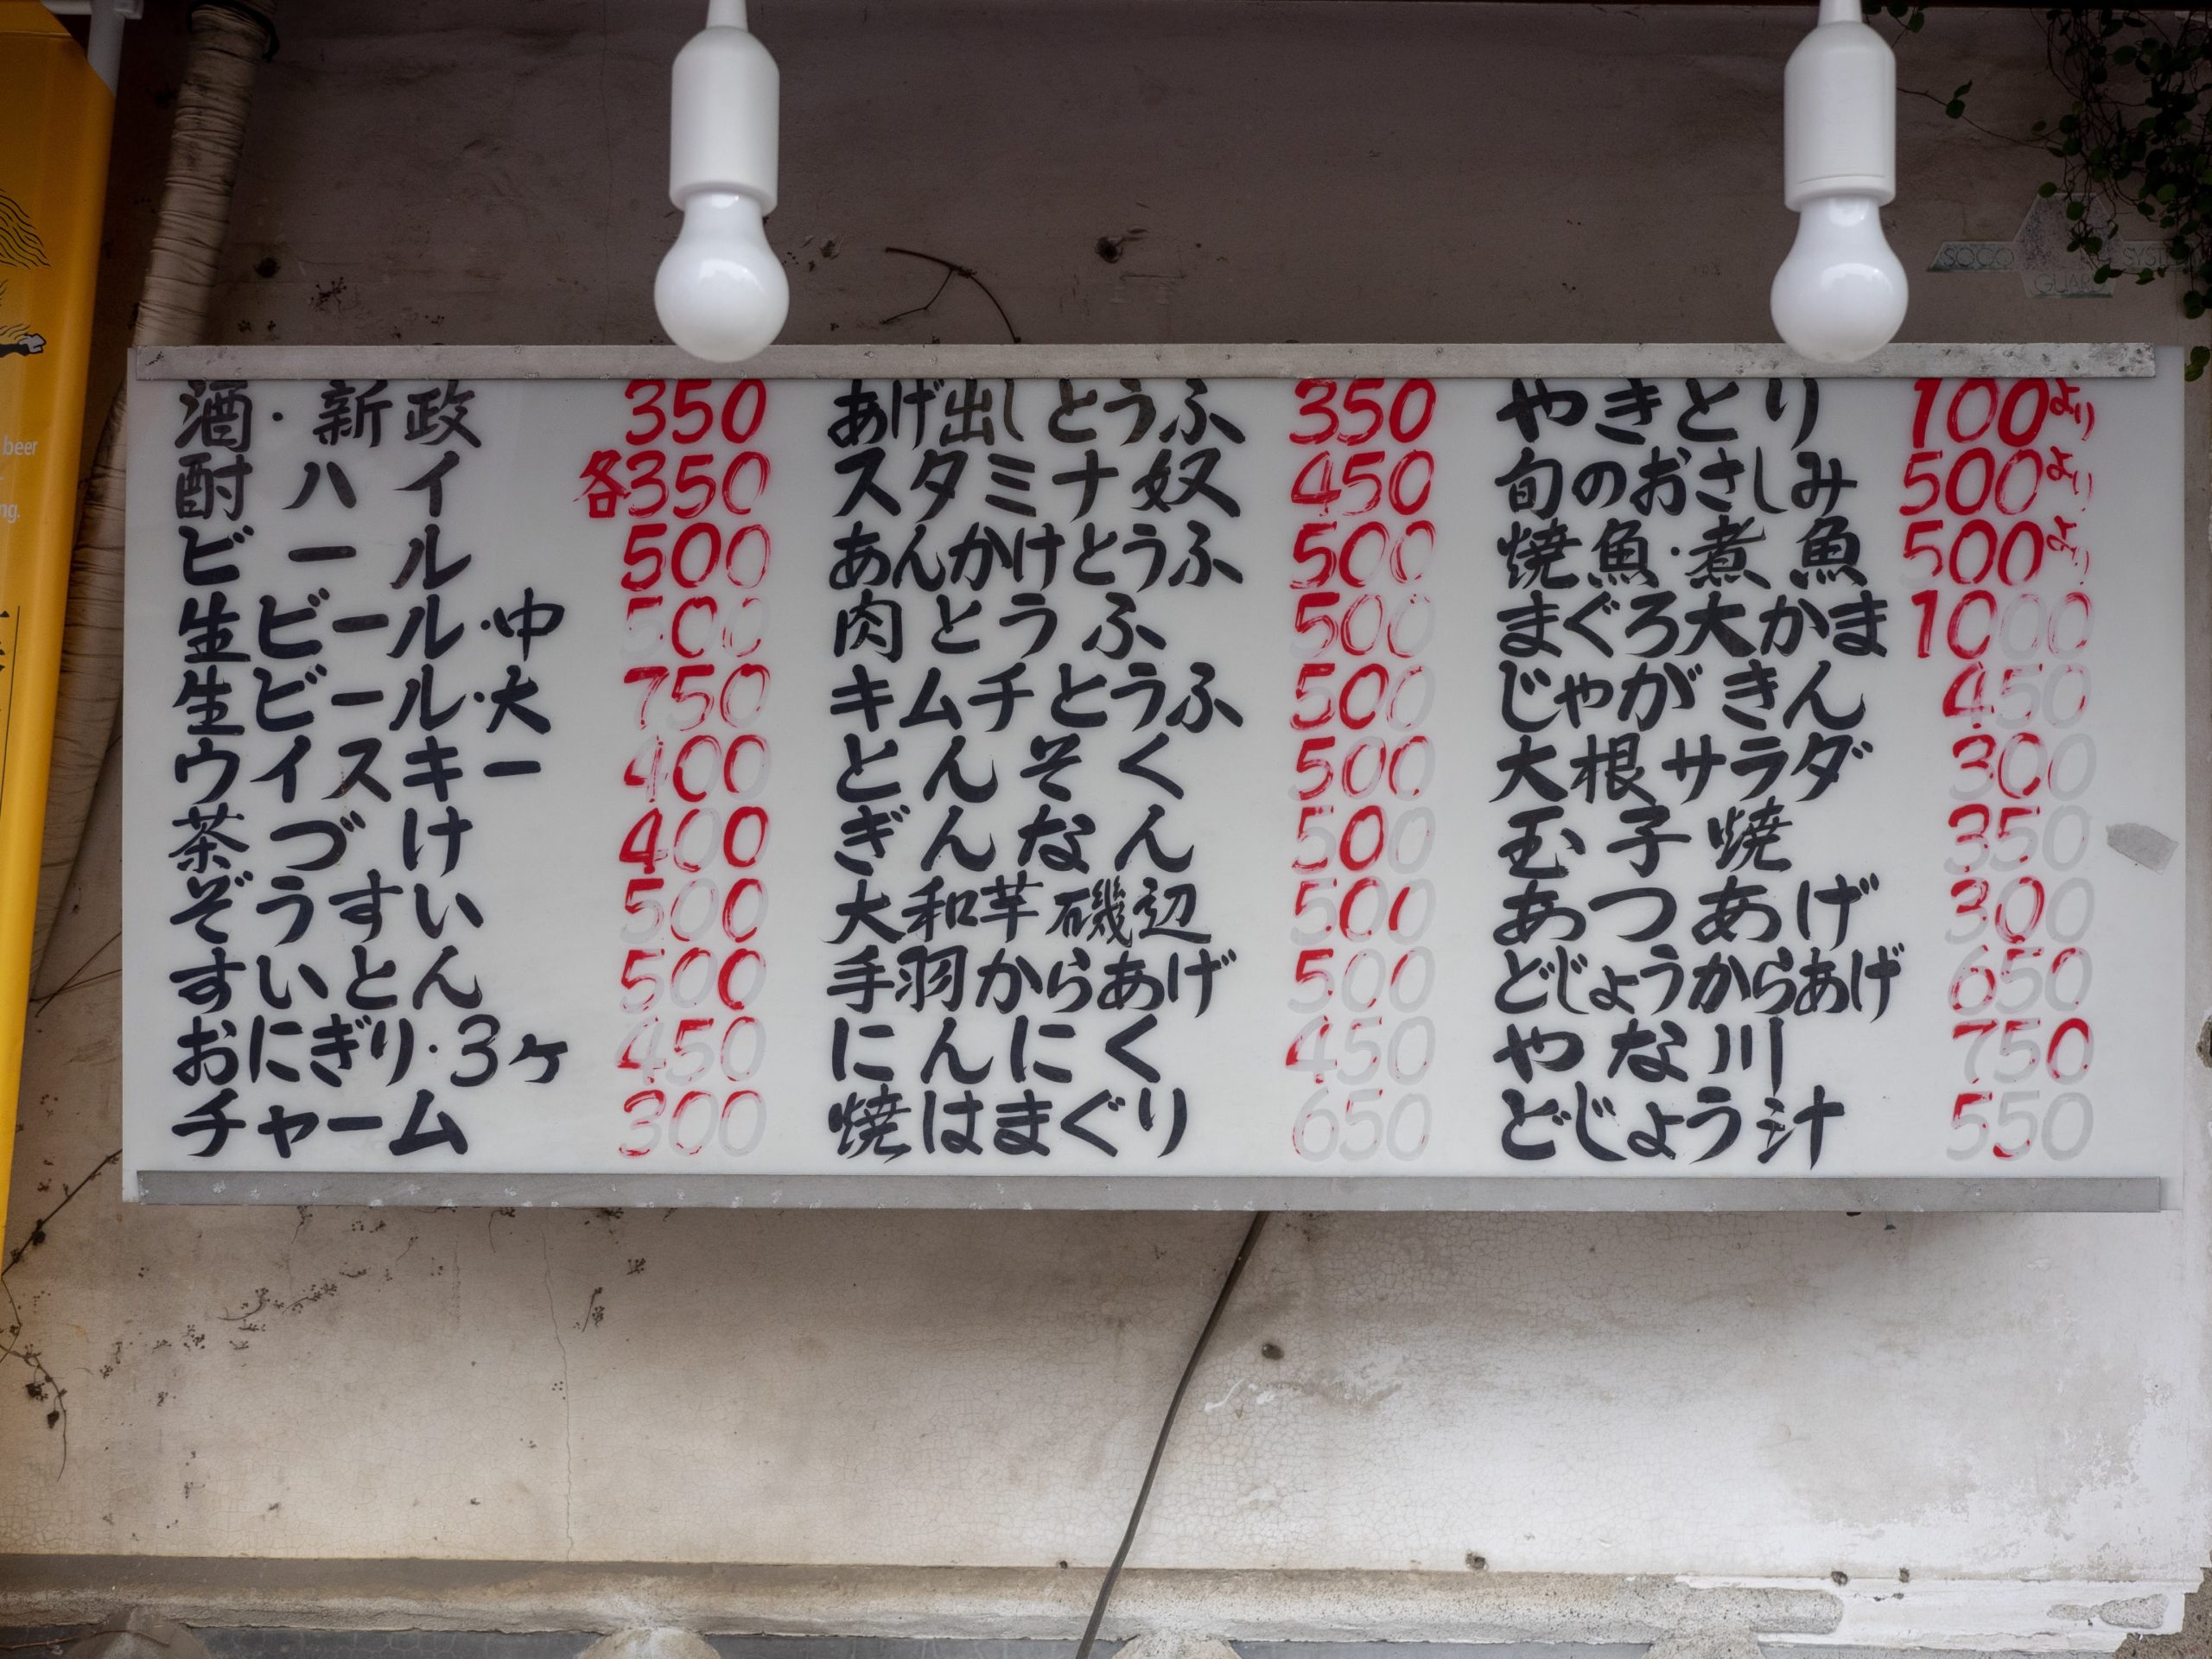 酒・新政 350
酎ハイ 各350
ビール 500
生ビール・中 500
生ビール・大 750
ウイスキー 400
茶づけ 400
ぞうすい 500
すいとん 500
おにぎり・3ヶ 450
チャーム 300
あげ出しとうふ 350
スタミナ奴 450
あんかけとうふ 500
肉とうふ 500
キムチとうふ 500
とんそく 500
ぎんなん 500
大和芋磯辺 500
手羽からあげ 500
にんにく 450
焼はまぐり 650
やきとり 100より
旬のおさしみ 500より
焼魚・煮魚 500より
まぐろ大かま 1000
じゃがきん 450
大根サラダ 300
玉子焼 350
あつあげ 300
どじょうからあげ 650
やな川 750
どじょう汁 550
beer
ng.
SOGO SYST
GUAR